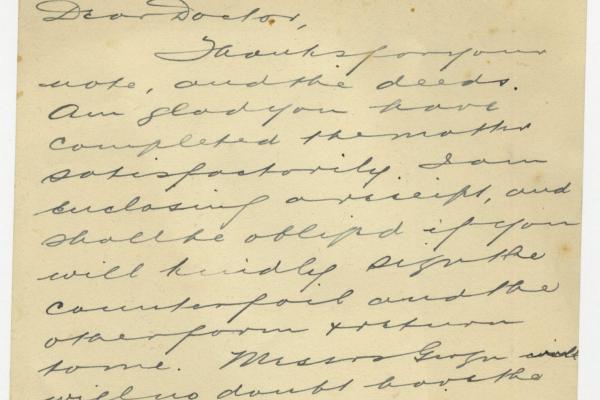 Dear Doctor,
Thanks for your
note, and the deeds.
Am glad you have
completed the matter
satisfactorily. I am
enclosing a receipt, and
shall be obliged if you
will kindly sign the
counterfoil and the
other form & return
to me. Messrs will
will no doubt have the